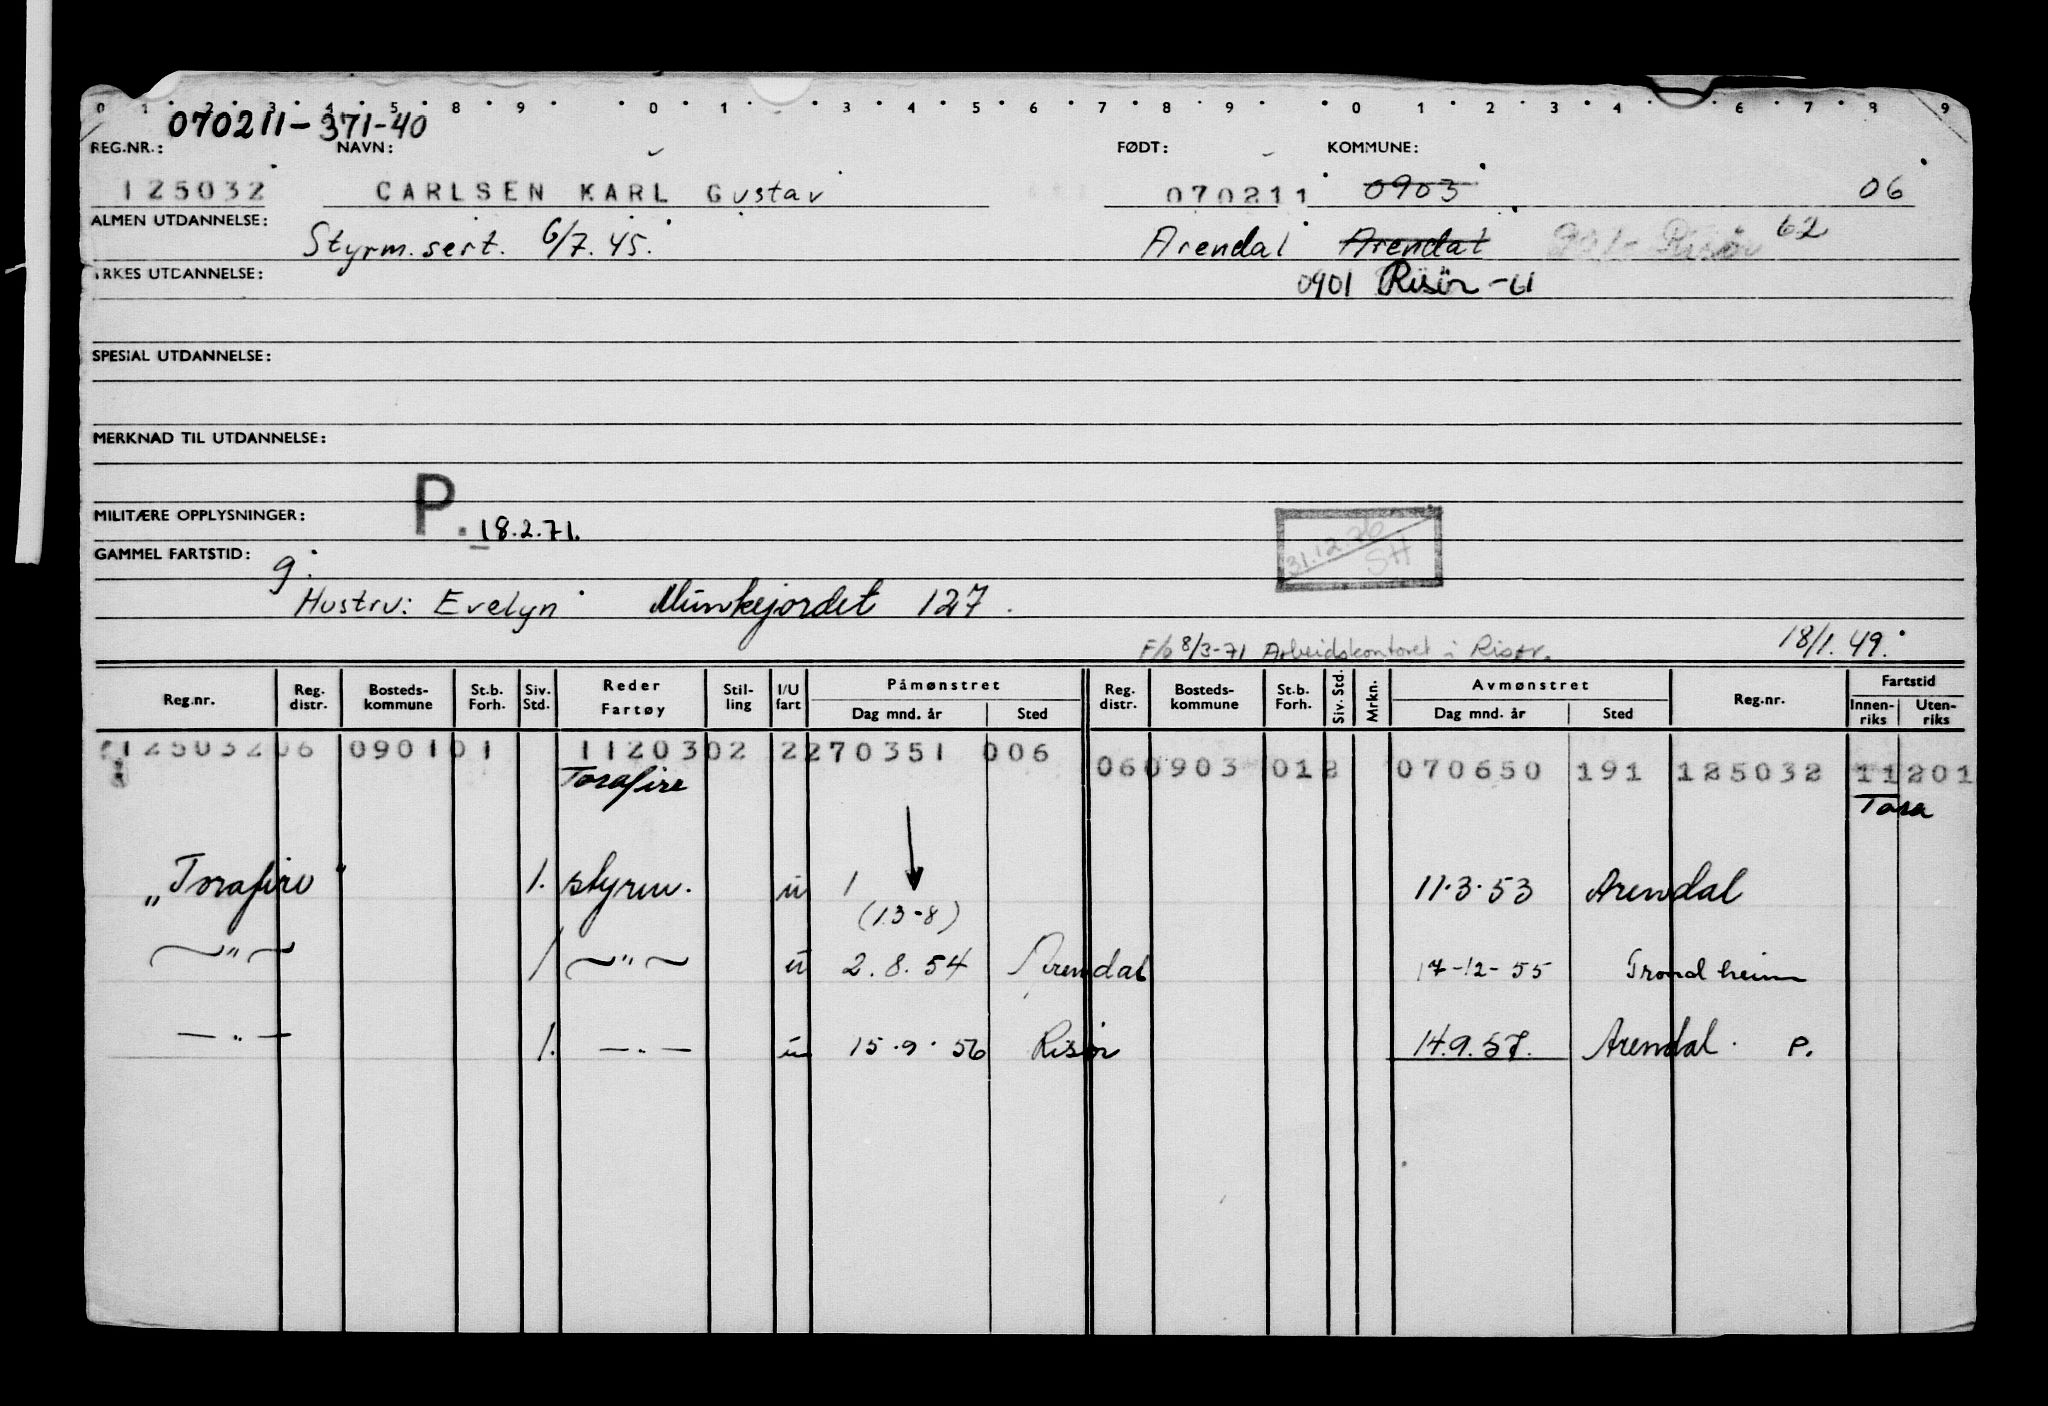 0 1 2 3 4 5 8 9 0 1 3 4 5 6 7 8 9 0 1 2 3 4 6 7 8 9
070211-371-40
REG.NR.: NAVN: FØDT: KOMMUNE:
125032 CARLSEN KARL Gustav 070211 0903 06
ALMEN UTDANNELSE: Styrm.sert. 6/7.45. Arendal Arendal Risør 62
YRKES UTDANNELSE: 0901 Risör -U
SPESIAL UTDANNELSE:
MERKNAD TIL UTDANNELSE:
MILITÆRE OPPLYSNINGER: P. 18.2.71.
31.12.76 SH
GAMMEL FARTSTID: g.
Hustru: Evelyn Munkejordet 127.
F/b 8/3-71 Arbeidskontoret i Risør. 18/1.49.
Reg.nr. Reg. distr. Bosteds-kommune St.b. Forh. Siv. Std. Reder Fartøy Stil-ling I/U fart Påmønstret Dag mnd. år Sted Reg. distr. Bosteds-kommune St.b. Forh. Siv. Std. Mrkn. Avmønstret Dag mnd. år Sted Reg.nr. Fartstid Innen-riks Uten-riks
125032 06 0901 01 1120302 2 270351 006
060903 012 070650 191 125032 11201
Torafire Tora
"Torafire" 1. styrm. u 1 11.3.53 Arendal
(13-8)
—"— 1 —"— u 2.8.54 Arendal 17-12-55 Trondheim
—"— 1. —"— u 15.9.56 Risør 14.9.57. Arendal. P.